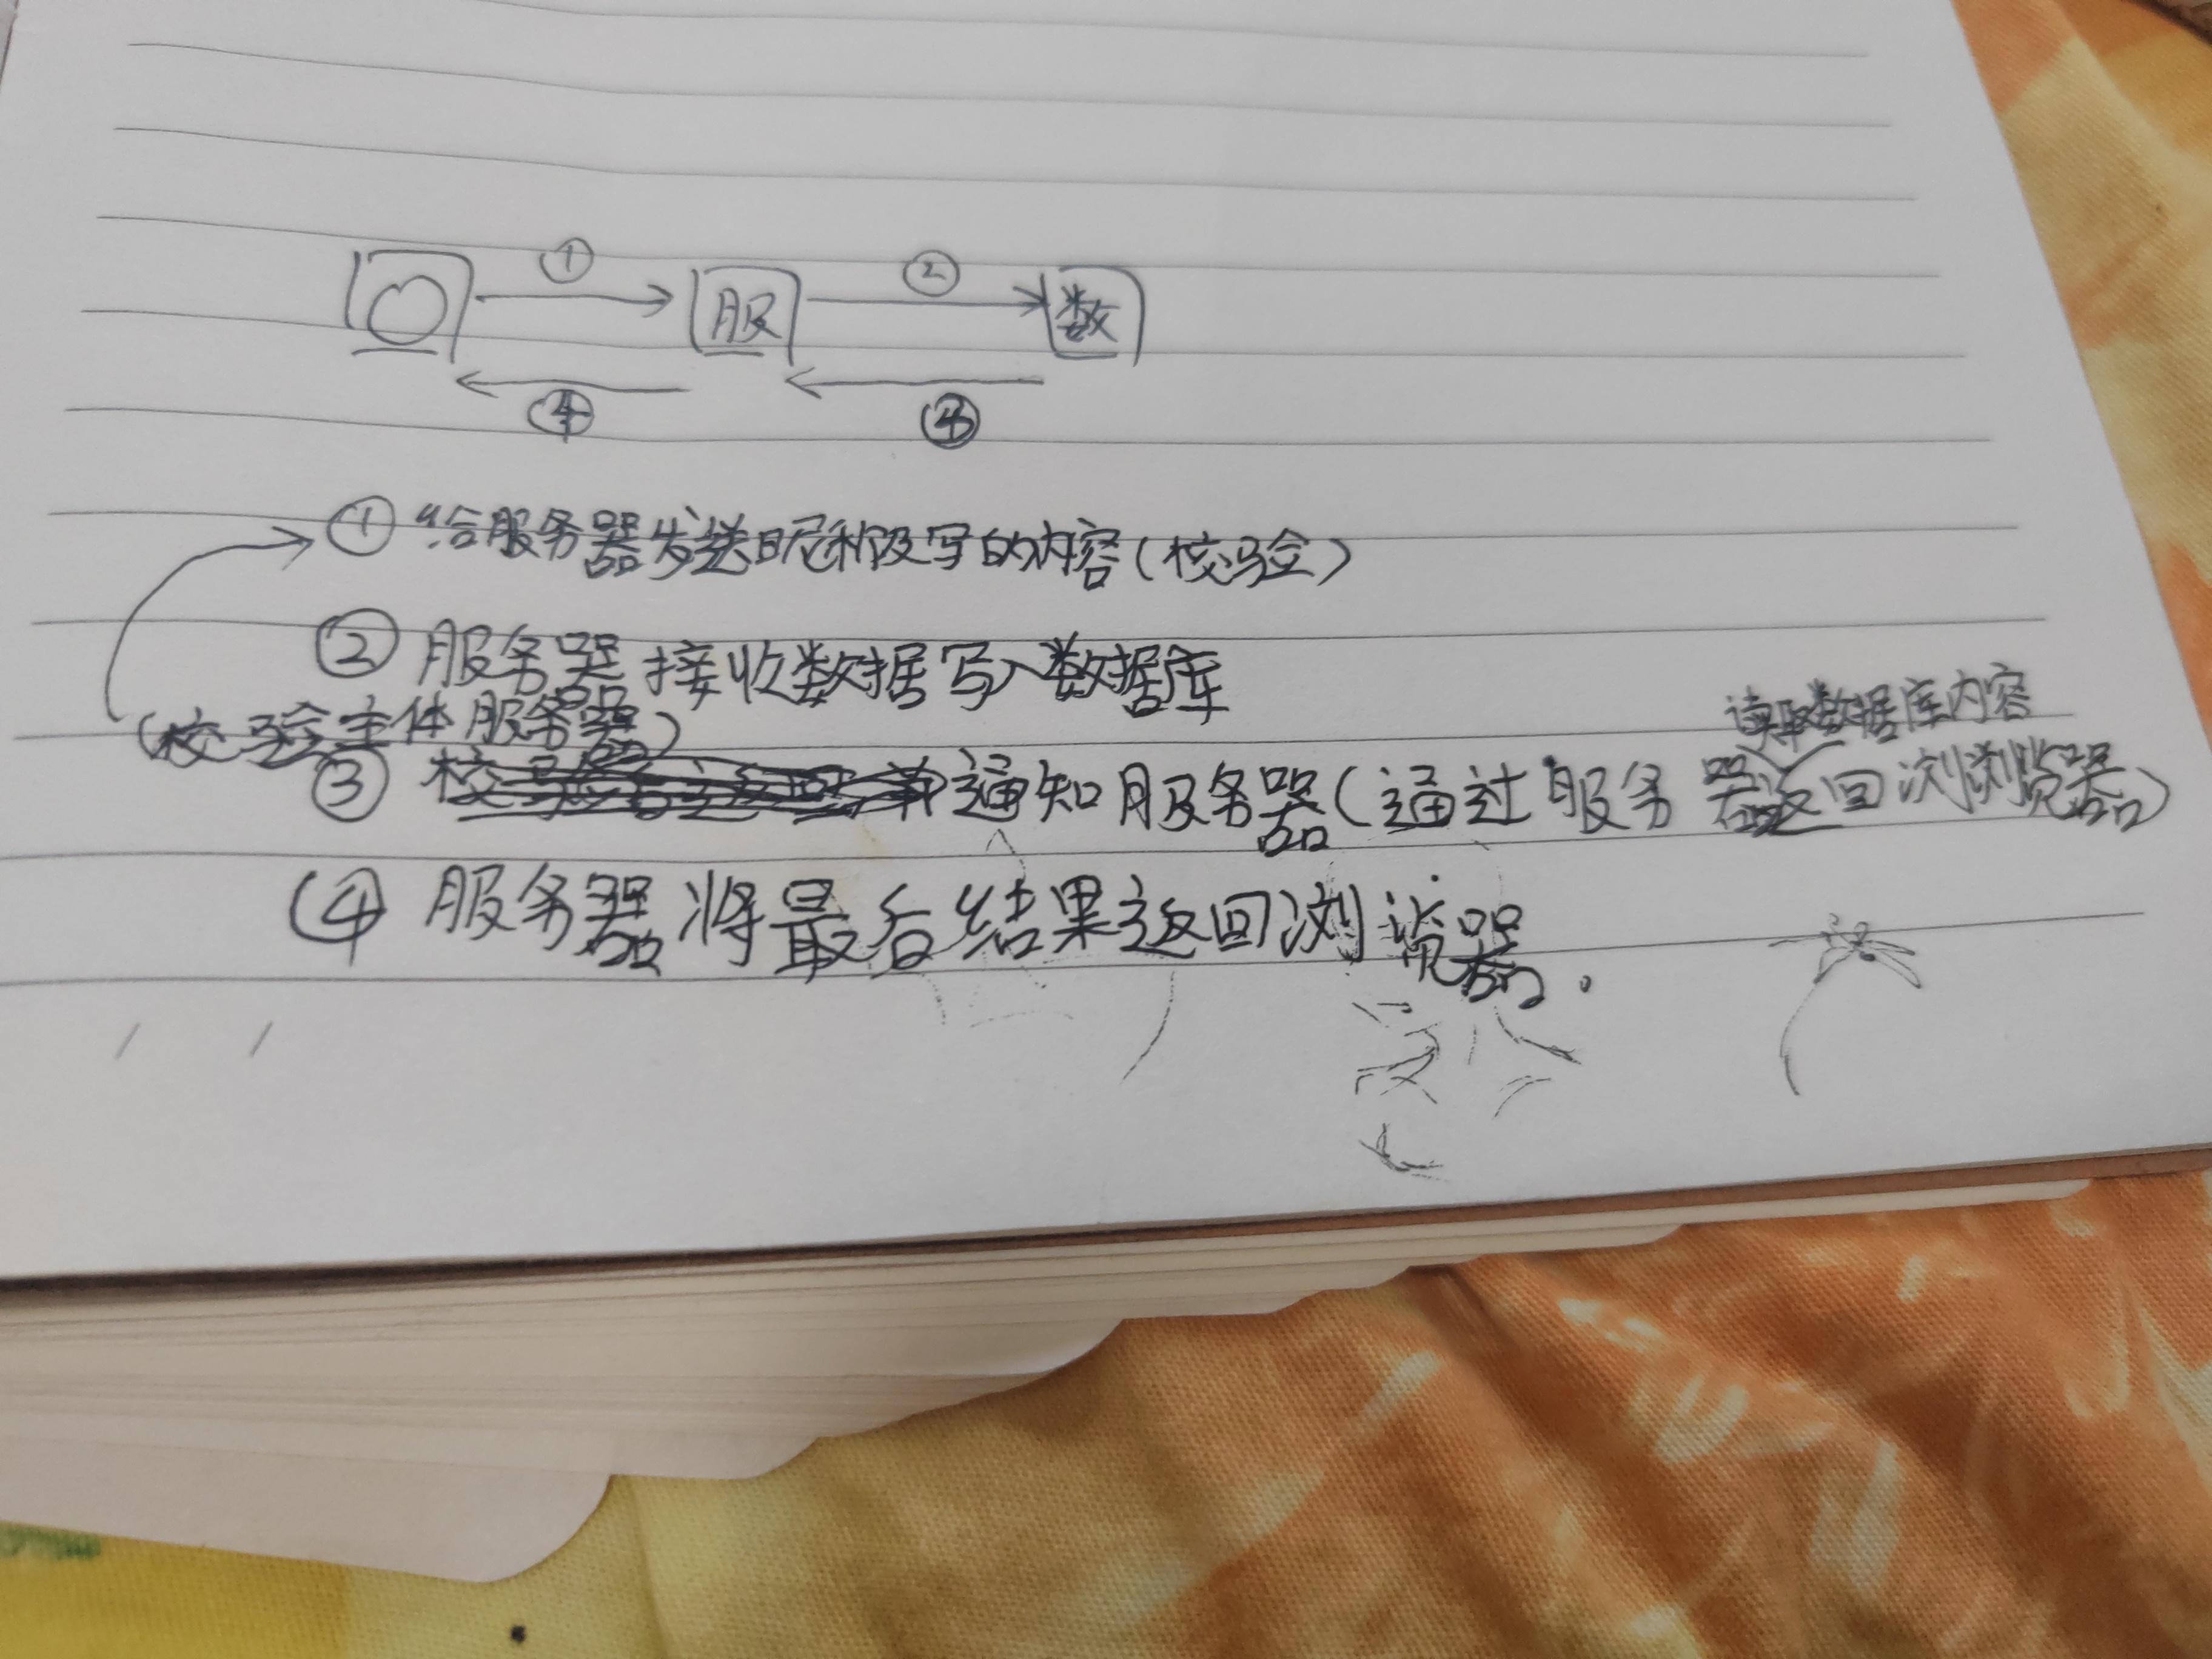 ① ②
服 数
④ ④
① 给服务器发送昵称及写的内容(校验)
② 服务器接收数据写入数据库
(校验主体服务器)
读取数据库内容
③ 校 通知服务器(通过服务器返回浏浏览器)
④ 服务器将最后结果返回浏览器.